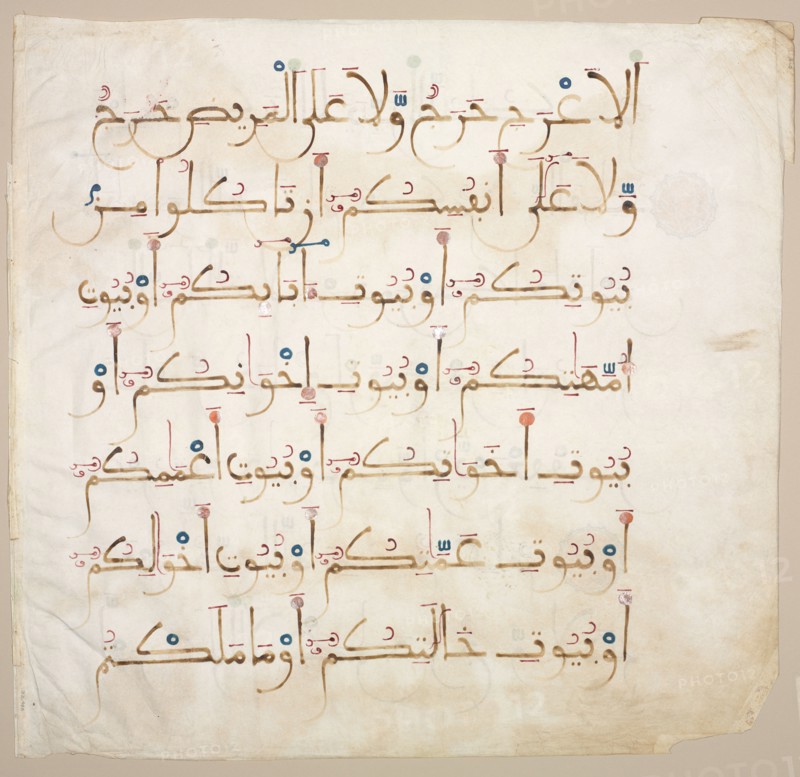 ٱلَاعْرَجِ حَرَجٌ وَّلَا عَلَى ٱلْمَرِيضِ حَرَجٌ
وَّلَا عَلَىٰٓ أَنفُسِكُمُۥٓ أَن تَاكُلُوا۟ مِنۢ
بُيُوتِكُمُۥٓ أَوْ بُيُوتِ ءَابَآئِكُمُۥٓ أَوْ بُيُوتِ
أُمَّهَٰتِكُمُۥٓ أَوْ بُيُوتِ إِخْوَٰنِكُمُۥٓ أَوْ
بُيُوتِ أَخَوَٰتِكُمُۥٓ أَوْ بُيُوتِ أَعْمَٰمِكُمُۥٓ
أَوْ بُيُوتِ عَمَّٰتِكُمُۥٓ أَوْ بُيُوتِ أَخْوَٰلِكُمُۥٓ
أَوْ بُيُوتِ خَٰلَٰتِكُمُۥٓ أَوْ مَا مَلَكْتُم